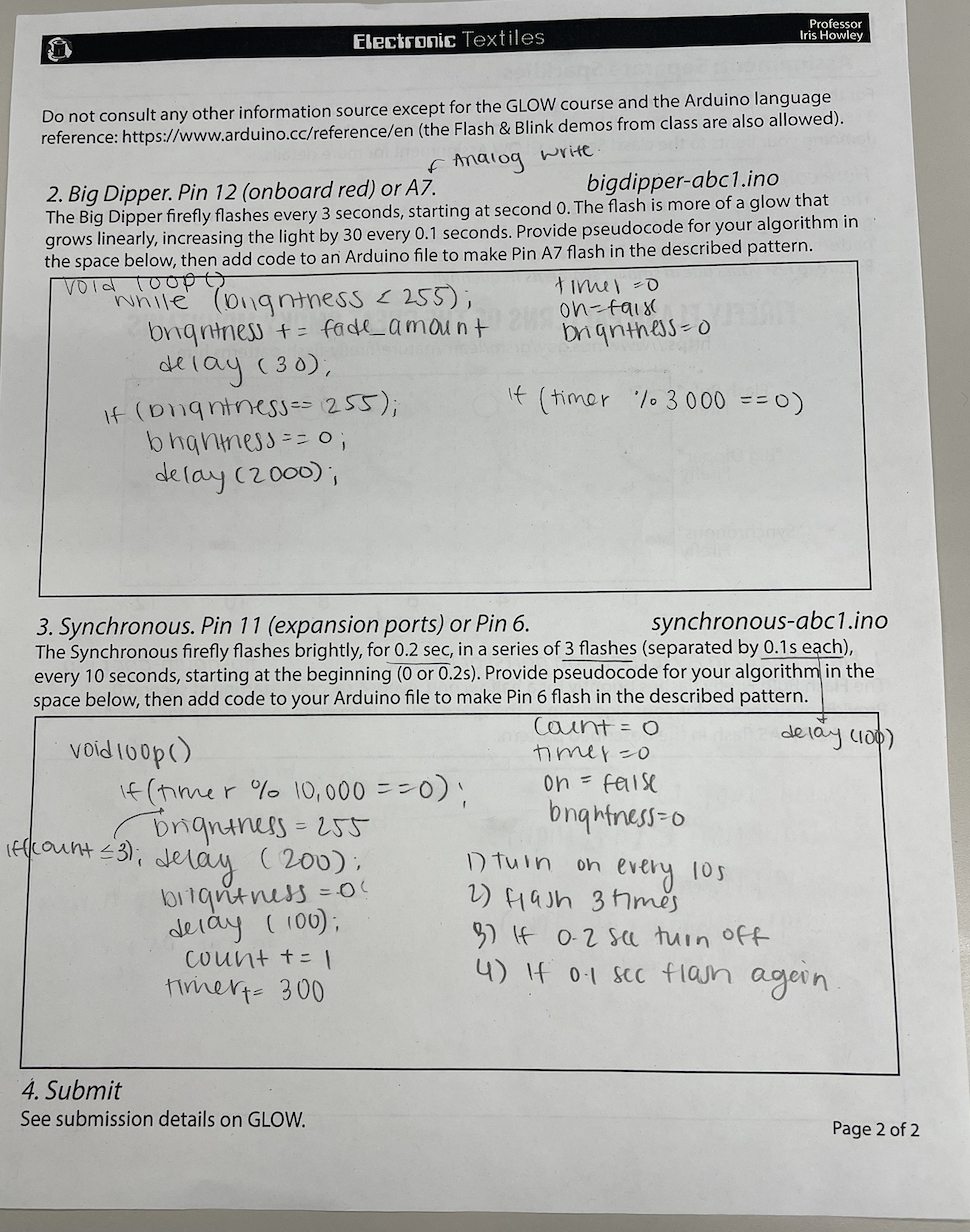 Electronic Textiles
Professor
Iris Howley
Do not consult any other information source except for the GLOW course and the Arduino language
reference: https://www.arduino.cc/reference/en (the Flash & Blink demos from class are also allowed).
Analog write.
2. Big Dipper. Pin 12 (onboard red) or A7.
bigdipper-abc1.ino
The Big Dipper firefly flashes every 3 seconds, starting at second 0. The flash is more of a glow that
grows linearly, increasing the light by 30 every 0.1 seconds. Provide pseudocode for your algorithm in
the space below, then add code to an Arduino file to make Pin A7 flash in the described pattern.
void loop()
while (brightness < 255);
brightness += fade_amount
delay (30);
if (brightness== 255);
brightness == 0;
delay (2000);
timer =0
on=false
brightness=0
if (timer % 3000 ==0)
3. Synchronous. Pin 11 (expansion ports) or Pin 6.
synchronous-abc1.ino
The Synchronous firefly flashes brightly, for 0.2 sec, in a series of 3 flashes (separated by 0.1s each),
every 10 seconds, starting at the beginning (0 or 0.2s). Provide pseudocode for your algorithm in the
space below, then add code to your Arduino file to make Pin 6 flash in the described pattern.
delay (100)
void loop()
if (timer % 10,000 ==0);
brightness = 255
if(count ≤3);
delay (200);
brightness = 0
delay (100);
count += 1
timer+= 300
Count = 0
timer =0
on = false
brightness=0
1) turn on every 10s
2) flash 3 times
3) If 0.2 sec turn off
4) If 0.1 sec flash again.
4. Submit
See submission details on GLOW.
Page 2 of 2